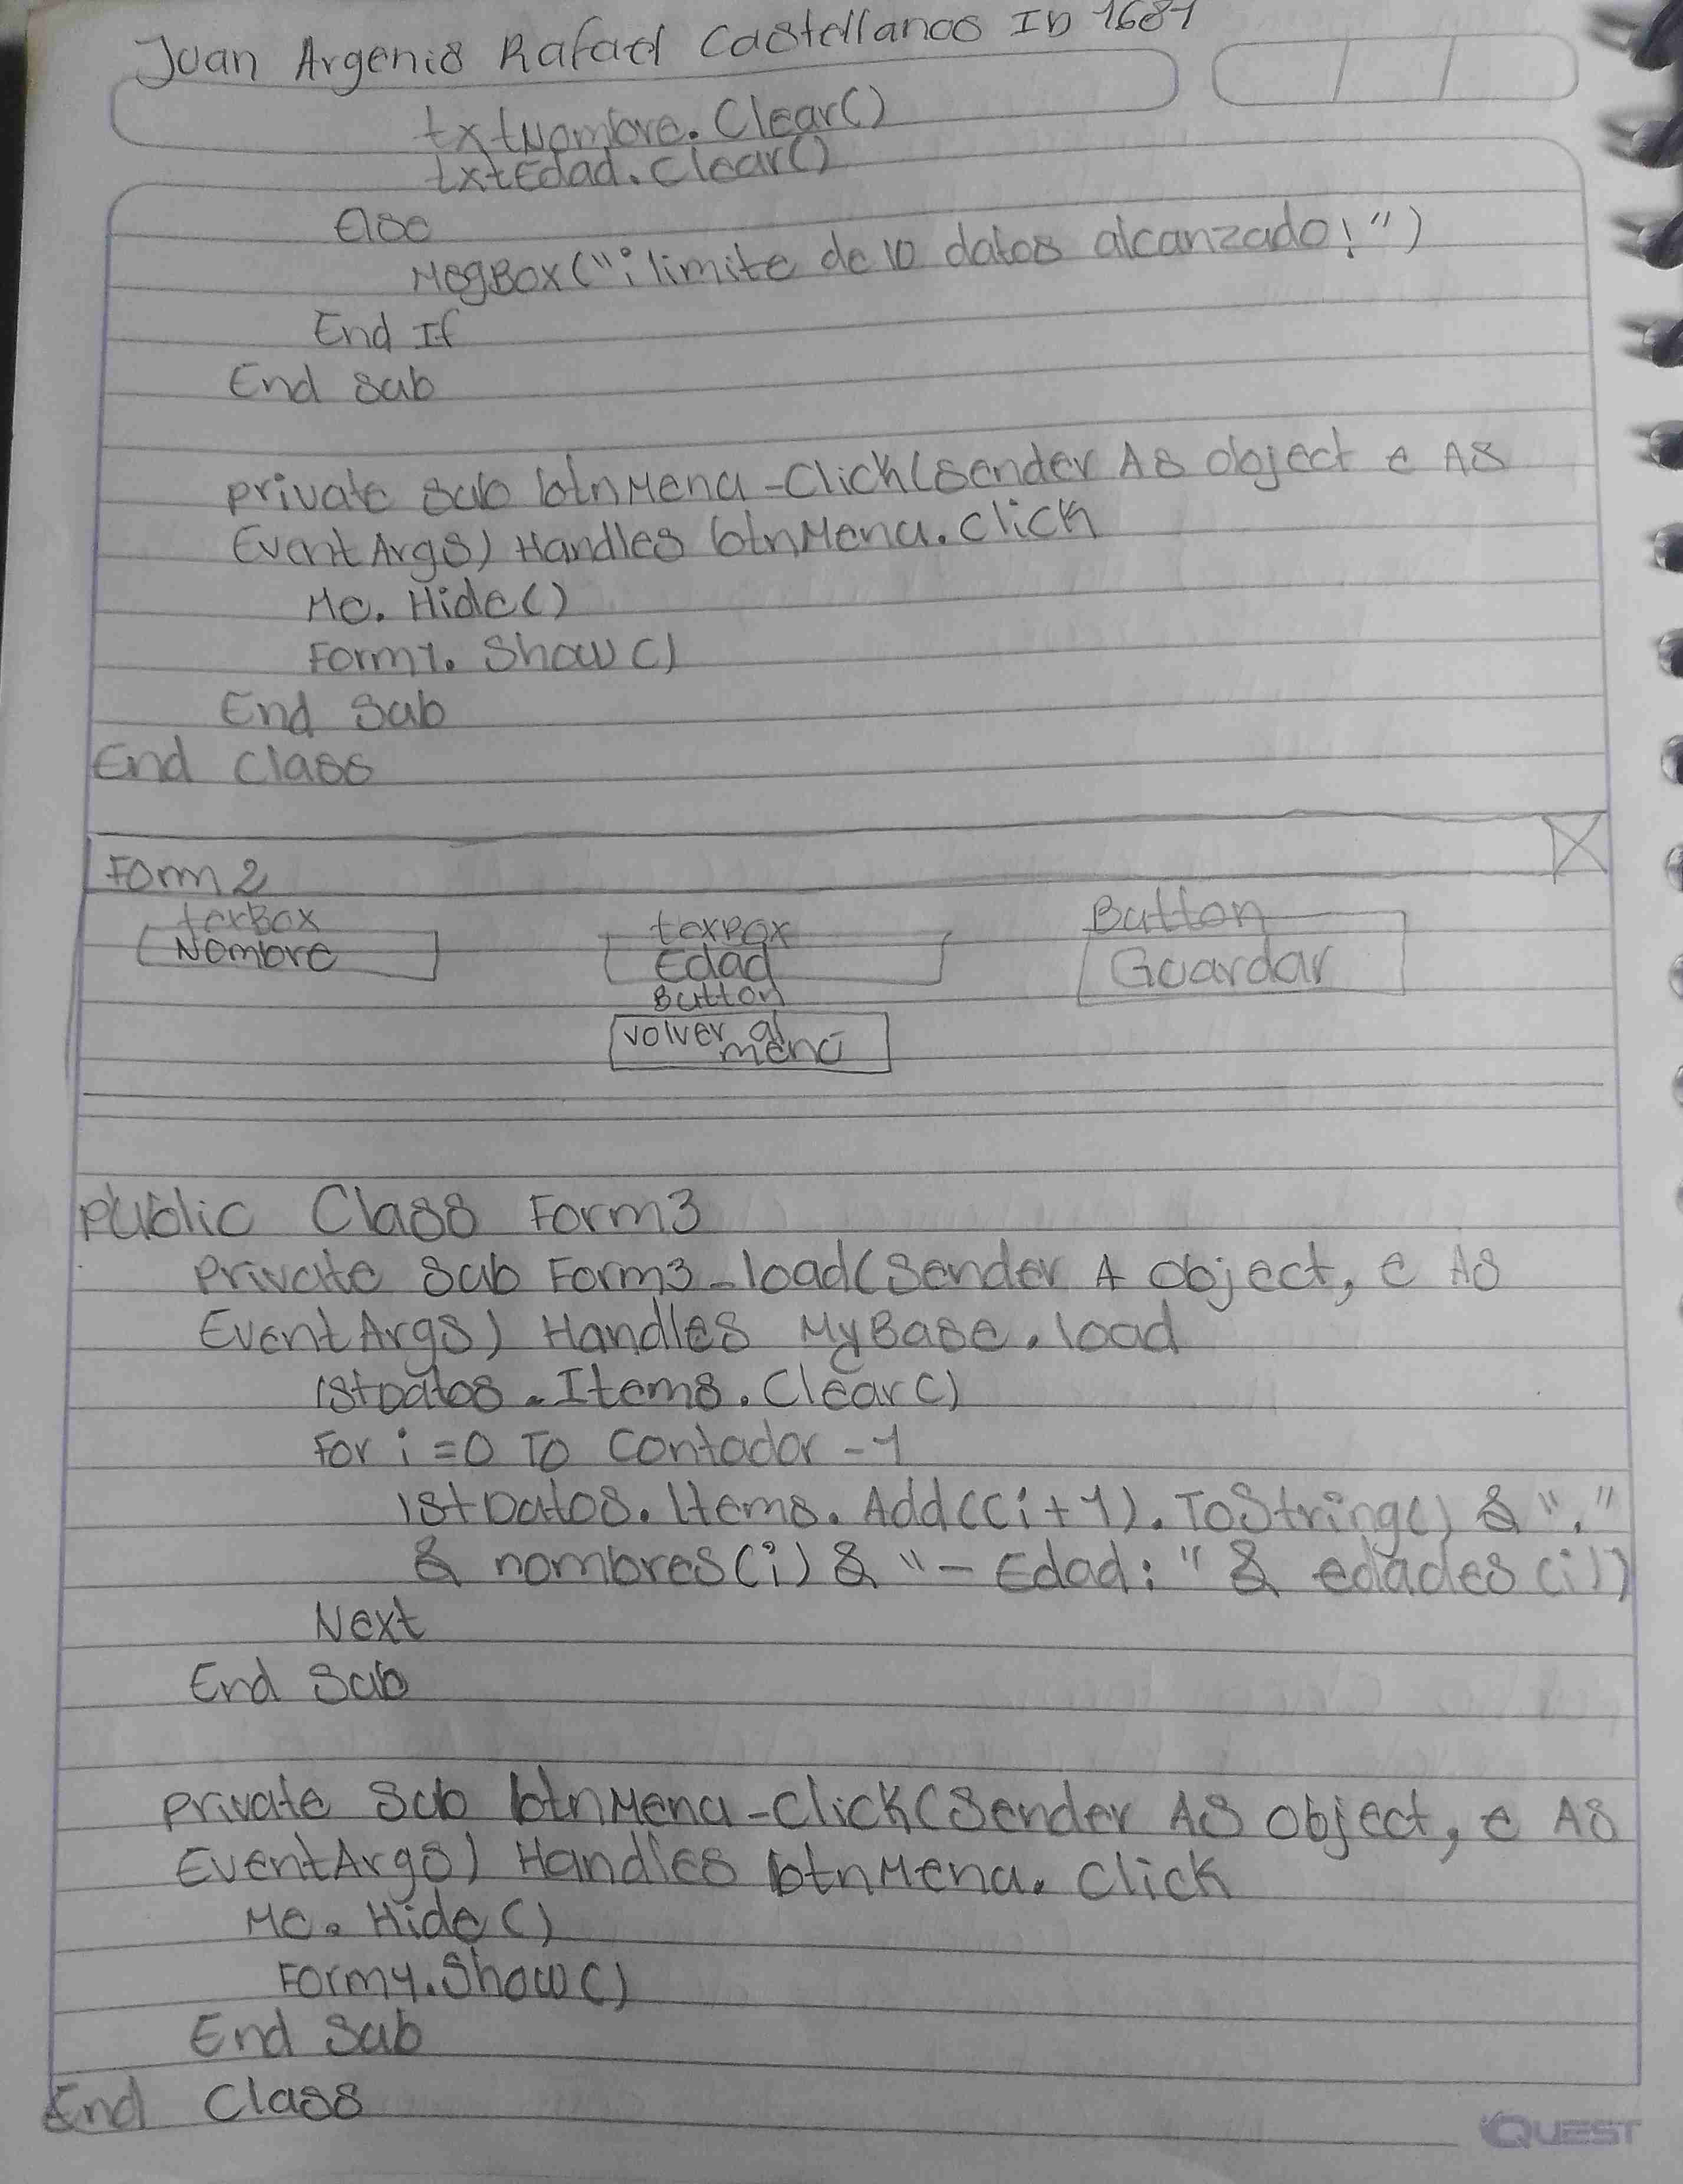 Juan Argenis Rafael Castellanos ID 1681
txtNombre.Clear()
txtEdad.Clear()
Else
MsgBox("¡limite de 10 datos alcanzado!")
End If
End Sub
private Sub btnMenu_Click(sender As object e As
EventArgs) Handles btnMenu.Click
Me.Hide()
Form1.Show()
End Sub
End Class
Form2
texBox
Nombre
texBox
Edad
Button
Guardar
Button
volver al
menú
Public Class Form3
Private Sub Form3_load(Sender A object, e As
EventArgs) Handles MyBase.load
lstDatos.Items.Clear()
For i = 0 To Contador - 1
lstDatos.Items.Add((i + 1).ToString() & "."
& nombres(i) & "- Edad: " & edades(i))
Next
End Sub
private Sub btnMenu_Click(Sender As object, e As
EventArgs) Handles btnMenu.Click
Me.Hide()
Form1.Show()
End Sub
End Class
QUEST